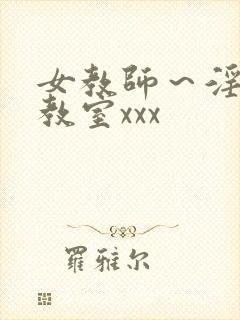 女教师～淫
教室xxx
羅雅尔